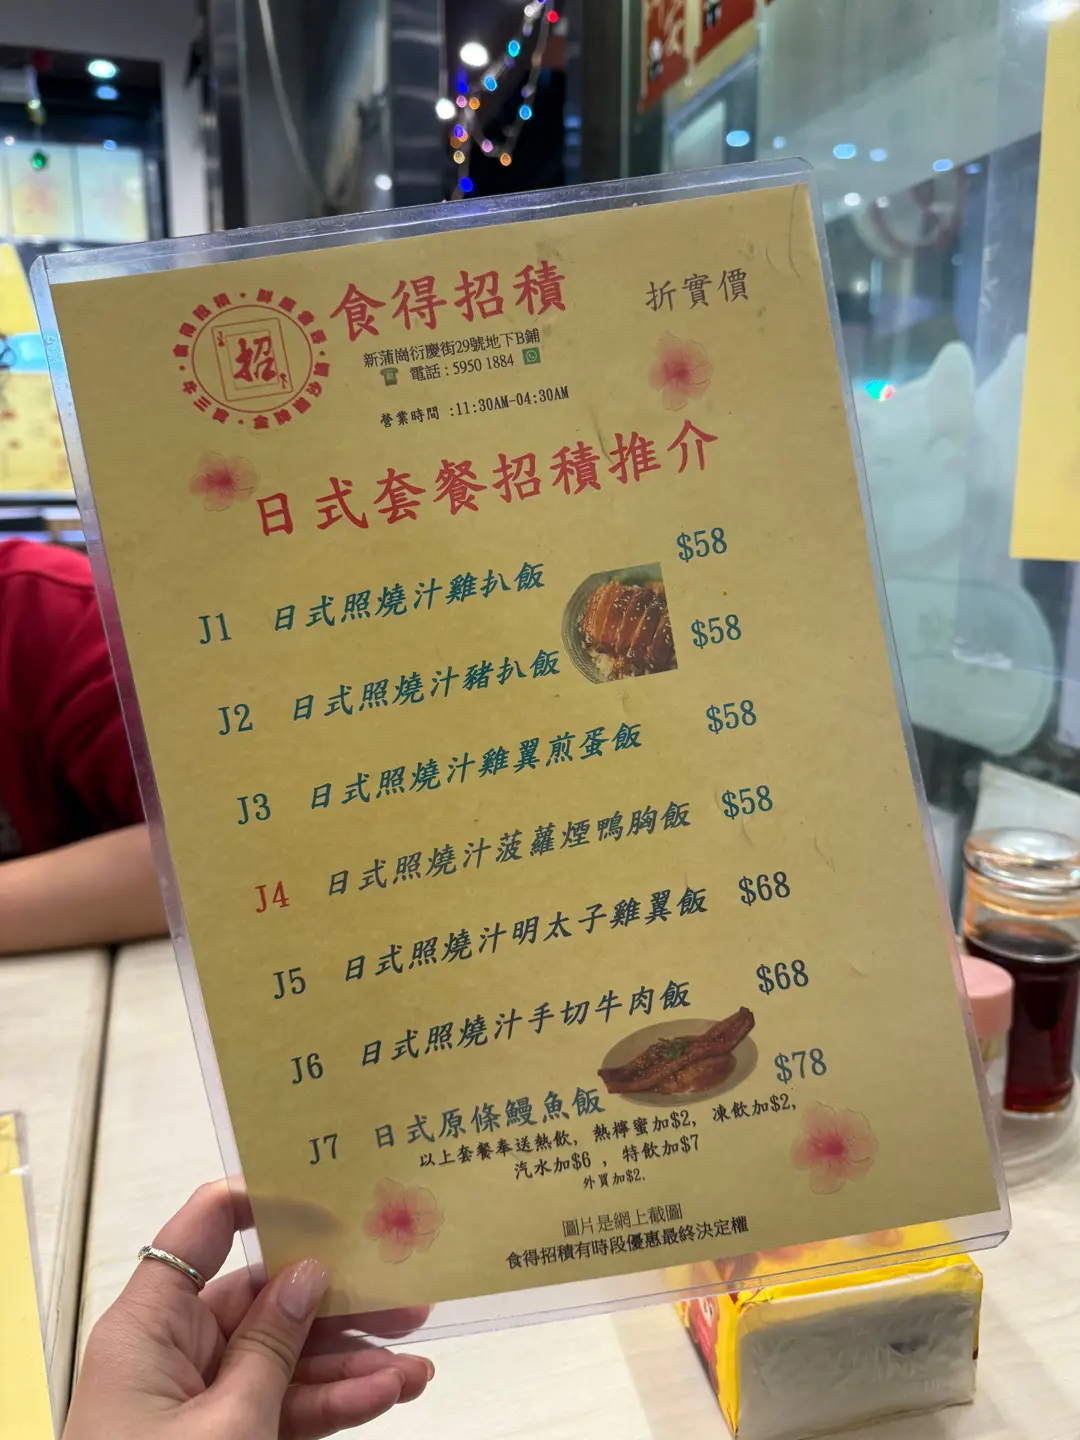 食得招積
折實價
招
新蒲崗衍慶街29號地下B鋪
電話:5950 1884
營業時間 :11:30AM-04:30AM
日式套餐招積推介
J1 日式照燒汁雞扒飯 $58
J2 日式照燒汁豬扒飯 $58
J3 日式照燒汁雞翼煎蛋飯 $58
J4 日式照燒汁菠蘿煙鴨胸飯 $58
J5 日式照燒汁明太子雞翼飯 $68
J6 日式照燒汁手切牛肉飯 $68
J7 日式原條鰻魚飯 $78
以上套餐奉送熱飲, 熱檸蜜加$2, 凍飲加$2,
汽水加$6 , 特飲加$7
外買加$2,
圖片是網上截圖
食得招積有時段優惠最終決定權